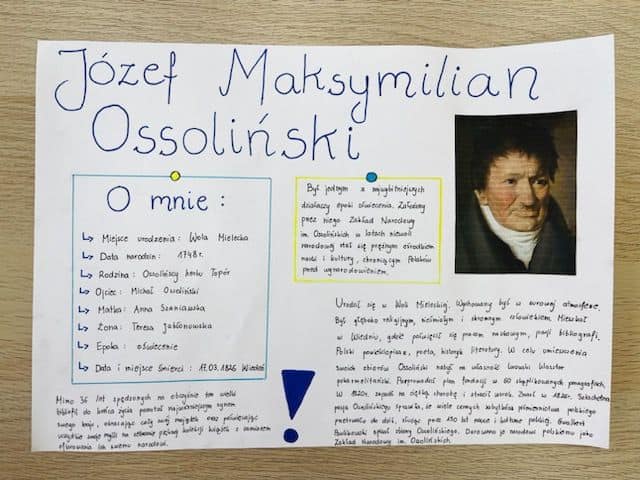 Józef Maksymilian
Ossoliński
O mnie :
Miejsce urodzenia : Wola Mielecka
Data narodzin : 1748 r.
Rodzina : Ossolińscy herbu Topór
Ojciec : Michał Ossoliński
Matka : Anna Szaniawska
Żona : Teresa Jabłonowska
Epoka : oświecenie
Data i miejsce śmierci : 17.03.1826 Wiedeń
Był jednym z najwybitniejszych
działaczy epoki oświecenia. Założony
przez niego Zakład Narodowy
im. Ossolińskich w latach niewoli
narodowej stał się prężnym ośrodkiem
nauki i kultury, chroniącym Polaków
przed wynarodowieniem.
Urodził się w Woli Mieleckiej. Wychowany był w surowej atmosferze.
Był głęboko religijnym, nieśmiałym i skromnym człowiekiem Mieszkał
w Wiedniu, gdzie poświęcił się pracom naukowym, pasji bibliografi.
Polski powieściopisarz, poeta, historyk literatury. W celu umieszczenia
swoich zbiorów Ossoliński nabył na własność lwowski klasztor
pokarmelitański. Poprowadził plan fundacji w 60 skąplikowanych paragrafach.
W 1820r. zapadł na ciężką chorobę i stracił wzrok. Zmarł w 1826r. Szlachetna
pasja Ossolińskiego sprawiła, że wiele cennych zabytków piśmiennictwa polskiego
przetrwało do dziś, służąc przez 150 lat nauce i kulturze polskiej. Gwalbert
Pawlikowski opisał zbiory Ossolińskiego. Darowano je narodowi polskiemu jako
Zakład Narodowy im. Ossolińskich.
Mimo 36 lat spędzonych na obczyźnie ten wielki
bibliofil do końca życia pozostał najwierniejszym synem
swego kraju, oddając cały swój majątek oraz poświęcając
wszystkie swoje myśli na zebranie pięknej kolekcji książek z zamiarem
ofiarowania ich swemu narodowi.
!